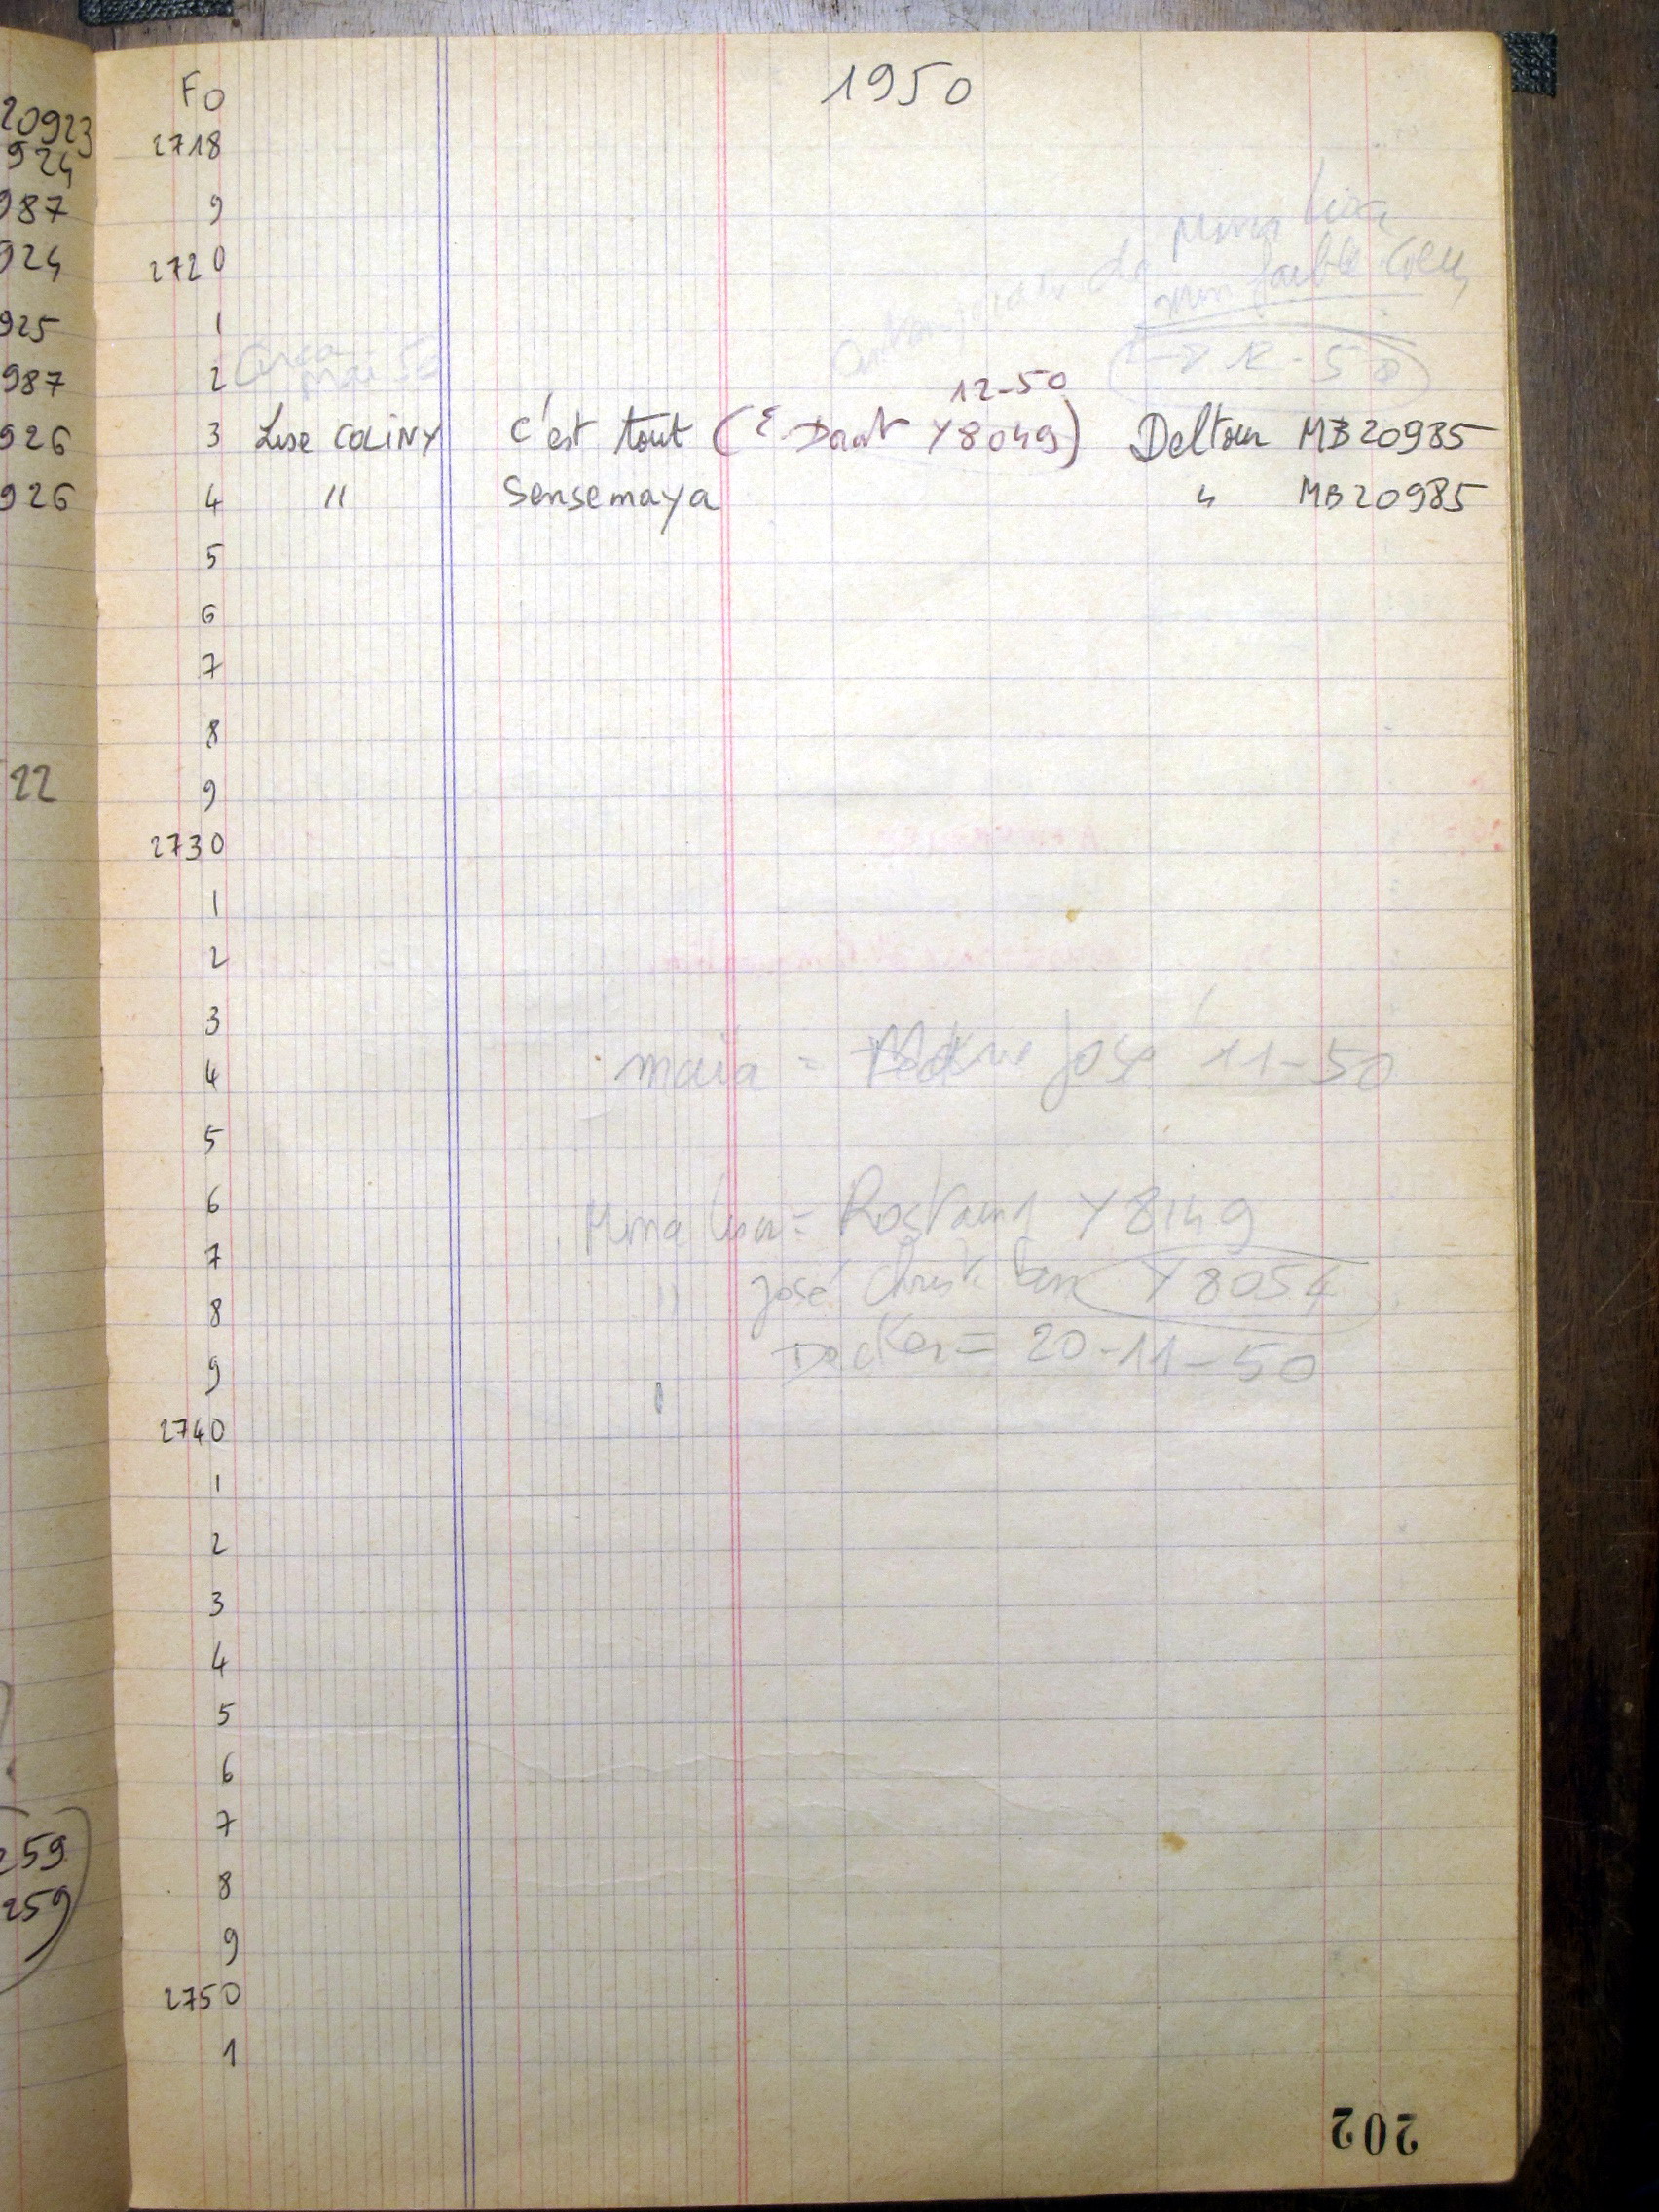 20923
924
987
924
925
987
926
926
22
259
259
Fo 1950
2718
9
2720
1
2
12-50
3 Lise COLINY c'est tout ( Y8049) Deltour MB20985
4 " Sensemaya " MB20985
5
6
7
8
9
2730
1
2
3
4 maïa = José 11-50
5
6 Mona lisa = Rostand Y8149
7 " José Y8054
8 Decker = 20-11-50
9
2740
1
2
3
4
5
6
7
8
9
2750
1
202